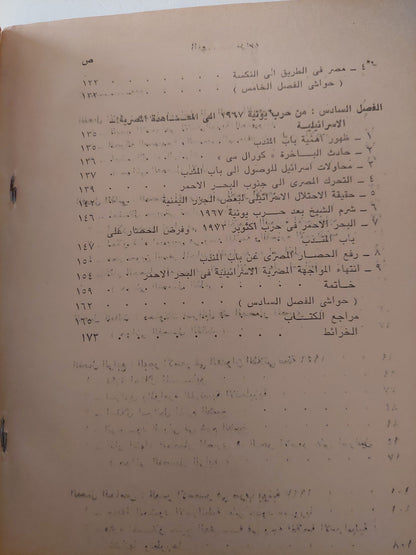 ص
٤ – مصر في الطريق الى النكسة . . . . . ١٢٢
( حواشي الفصل الخامس ) . . . . . ١٣٢
الفصل السادس : من حرب يونية ١٩٦٧ الى المعاهدة المصرية
الاسرائيلية . . . . . ١٣٥
١ – ظهور أهمية باب المندب . . . . . ١٣٥
٢ – حادث الباخرة « كورال سى » . . . . . ١٣٧
٣ – محاولات اسرائيل للوصول الى باب المندب . . . ١٣٧
٤ – التحرك المصرى الى جنوب البحر الاحمر . . . ١٣٩
٥ – حقيقة الاحتلال الاسرائيلى لبعض الجزر اليمنية
٦ – شرم الشيخ بعد حرب يونية ١٩٦٧ . . . ١٤٦
٧ – البحر الاحمر فى حرب اكتوبر ١٩٧٣ وفرض الحصار على
باب المندب . . . . . ١٤٧
٨ – رفع الحصار المصرى عن باب المندب . . . ١٥٠
٩ – انتهاء المواجهة المصرية الاسرائيلية فى البحر الاحمر . ١٥٤
خاتمة . . . . . ١٥٩
( حواشي الفصل السادس ) . . . . . ١٦٢
مراجع الكتاب . . . . . ١٦٥
الخرائط . . . . . ١٧٣